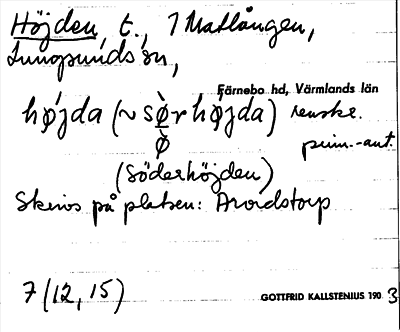 Höjden, t., 7 Matlången,
Lungsunds sn,
Färnebo hd, Värmlands län
hǿjda (~ sø̀r hǿjda)
ø̀
(Söderhöjden)
Skrivs på platsen: Arvidstorp
7 (12, 15)
GOTTFRID KALLSTENIUS 1903